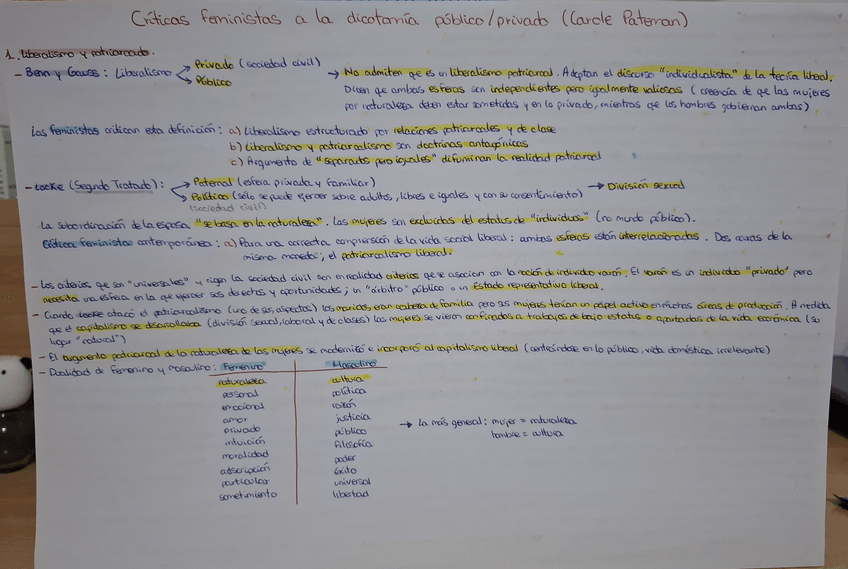 Críticas feministas a la dicotomía público/privado (Carole Pateman)
1. Liberalismo y patriarcado.
- Benn y Gauss: Liberalismo
Privado (sociedad civil)
Público
→ No admiten que es un liberalismo patriarcal. Adoptan el discurso "individualista" de la teoría liberal.
Dicen que ambas esferas son independientes pero igualmente valiosas (creencia de que las mujeres
por naturaleza deben estar sometidas y en lo privado, mientras que los hombres gobiernan ambas)
Las feministas critican esta definición: a) Liberalismo estructurado por relaciones patriarcales y de clase
b) Liberalismo y patriarcalismo son doctrinas antagónicas
c) Argumento de "separados pero iguales" difuminan la realidad patriarcal
- Locke (Segundo Tratado):
Paternal (esfera privada y familiar)
Político (sólo se puede ejercer sobre adultos, libres e iguales y con su consentimiento)
(sociedad civil)
→ División sexual
La subordinación de la esposa "se basa en la naturaleza". Las mujeres son excluidas del estatus de "individuos" (no mundo público).
Crítica feminista contemporánea: a) Para una correcta comprensión de la vida social liberal: ambas esferas están interrelacionadas. Dos caras de la
misma moneda; el patriarcalismo liberal.
- Los criterios que son "universales" y rigen la sociedad civil son en realidad criterios que se asocian con la noción de individuo varón. El varón es un individuo "privado" pero
necesita una esfera en la que ejercer sus derechos y oportunidades; un "árbitro" público o un Estado representativo liberal.
- Cuando Locke atacó el patriarcalismo (uno de sus aspectos) los maridos eran cabeza de familia pero sus mujeres tenían un papel activo en muchas áreas de producción. A medida
que el capitalismo se desarrollaba (división sexual, laboral y de clases) las mujeres se vieron confinadas a trabajos de bajo estatus o apartadas de la vida económica (su
lugar "natural")
- El argumento patriarcal de la naturaleza de las mujeres se modernizó e incorporó al capitalismo liberal (centrándose en lo público, vida doméstica irrelevante)
- Dualidad de femenino y masculino: Femenino Masculino
naturaleza cultura
personal política
emocional razón
amor justicia
privado público
intuición filosofía
moralidad poder
adscripción éxito
particular universal
sometimiento libertad
→ La más general: mujer = naturaleza
hombre = cultura